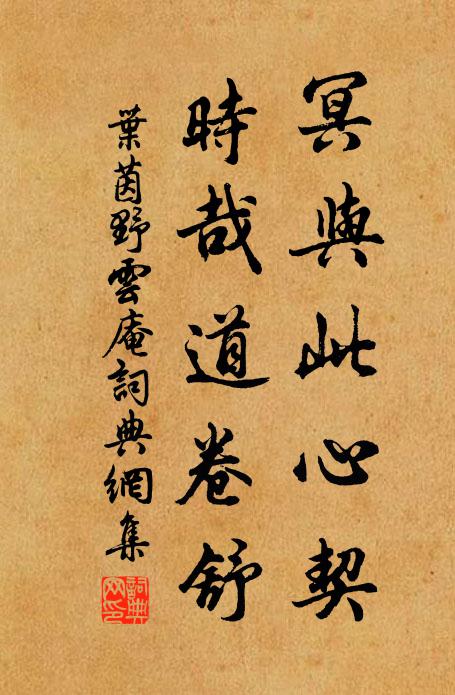 冥與此心契
時哉道卷舒
葉茵野雲庵詞典網集
詞典網印